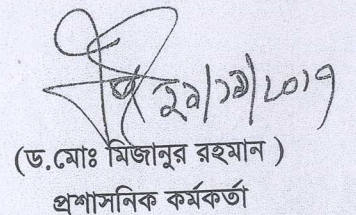 ২৯/১১/২০১৭
(ড.মোঃ মিজানুর রহমান )
প্রশাসনিক কর্মকর্তা